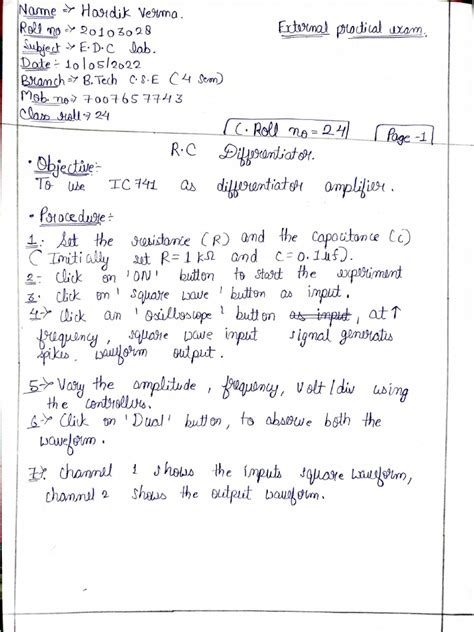 Name :- Hardik Verma.
Roll no :- 20103028
External practical exam.
Subject :- E.D.C lab.
Date :- 10/05/2022
Branch :- B.Tech C.S.E (4 Sem)
Mob. no :- 7007657743
Class roll :- 24
C. Roll no = 24
Page -1
R.C Differentiator.
• Objective :-
To use IC741 as differentiator amplifier.
• Procedure :-
1:- Set the resistance (R) and the capacitance (C)
( Initially set R = 1 kΩ and C = 0.1 uf ).
2:- Click on 'ON' button to start the experiment
3:- Click on 'square wave' button as input.
4:-> Click on 'Oscilloscope' button as input, at ↑
frequency, square wave input signal generates
spikes waveform output.
5:-> Vary the amplitude, frequency, volt/div using
the controllers.
6:-> Click on 'Dual' button, to observe both the
waveform.
7:- channel 1 shows the inputs square waveform,
channel 2 shows the output waveform.